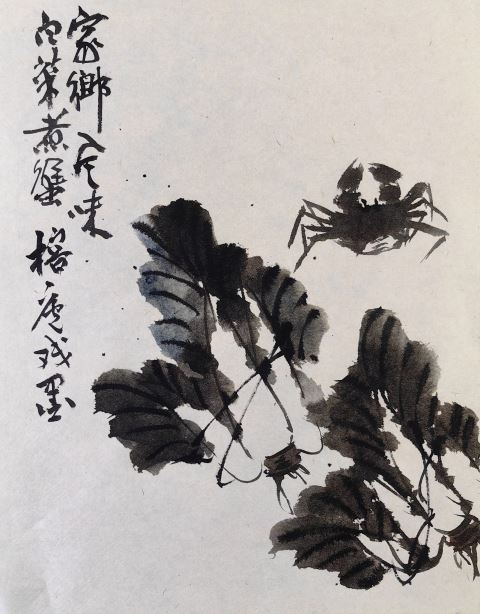 家鄉風味
白菜煮蟹 榕庵戏墨